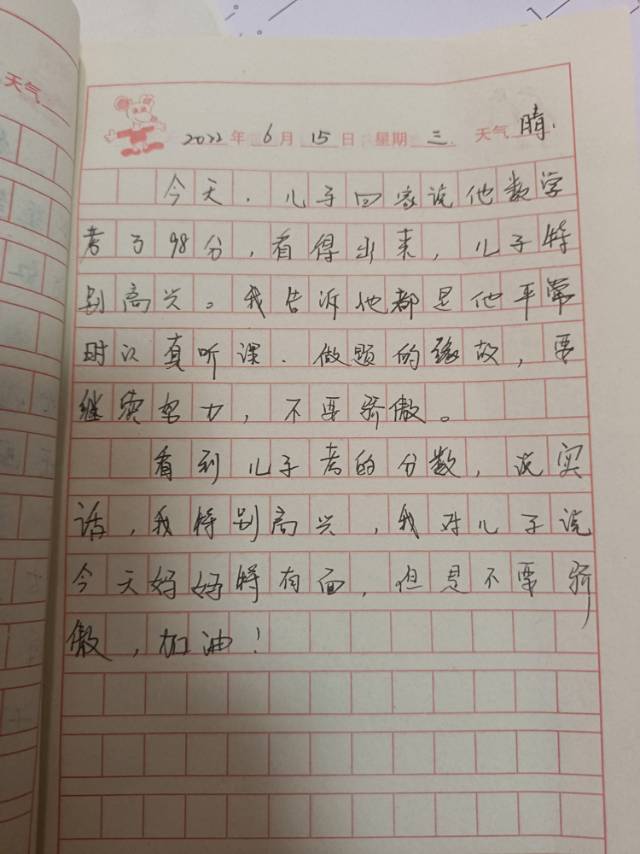 天气
2022年6月15日 星期三 天气晴.
今天.儿子回家说他数学
考了98分,看得出来,儿子特
别高兴。我告诉他都是他平常
时认真听课.做题的缘故,要
继续努力,不要骄傲。
看到儿子考的分数,说实
话,我特别高兴,我对儿子说
今天妈妈特有面,但是不要骄
傲,加油!